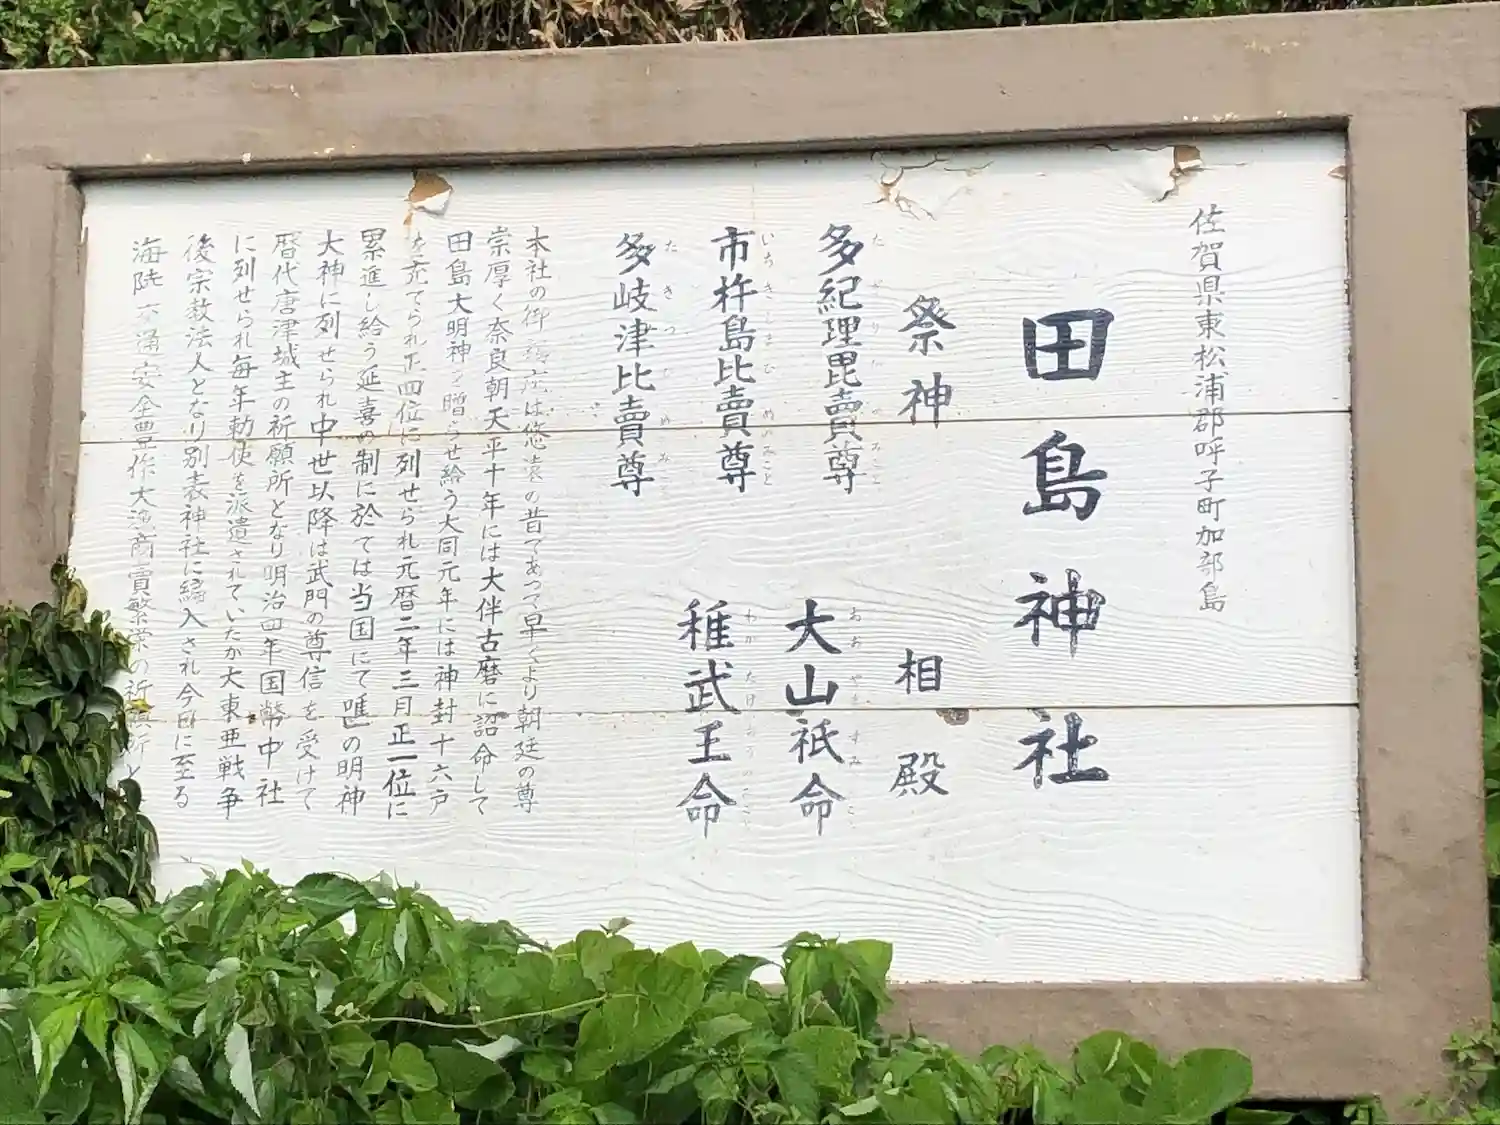 佐賀県東松浦郡呼子町加部島
田島神社
祭神
多紀理毘賣尊
市杵島比賣尊
いちきしまひめのみこと
多岐津比賣尊
相殿
大山祇命
稚武王命
本社の御は悠遠の昔であつて早くより朝廷の尊
崇厚く奈良朝天平十年には大伴古麿に詔命して
田島大明神を贈らせ給う大同元年には神封十六戸
を充てられ正四位に列せられ元暦二年三月正一位に
累進し給う延喜の制に於ては当国にて唯一の明神
大神に列せられ中世以降は武門の尊信を受けて
暦代唐津城主の祈願所となり明治四年国幣中社
に列せられ毎年勅使を派遣されていたが大東亜戦争
後宗教法人となり別表神社に編入され今日に至る
海陸安全豊作大漁商賣繁栄の祈願所と